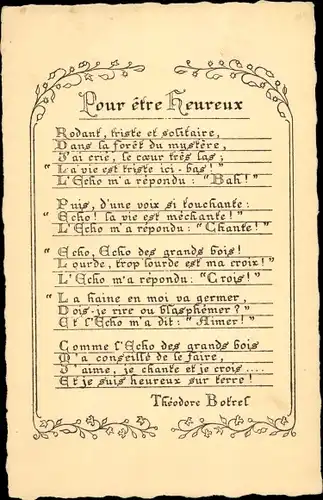 Pour être Heureux
Rodant, triste et solitaire,
Dans la forêt du mystère,
J'ai crié, le cœur très las ;
"La vie est triste ici-bas !"
L'Echo m'a répondu : "Bah !"
Puis, d'une voix si touchante :
"Echo ! la vie est méchante !"
L'Echo m'a répondu : "Chante !"
"Echo, Echo des grands bois !
Lourde, trop lourde est ma croix !"
L'Echo m'a répondu : "Crois !"
"La haine en moi va germer,
Dois-je rire ou blasphémer ?"
Et l'Echo m'a dit : "Aimer !"
Comme l'Echo des grands bois
M'a conseillé de le faire,
J'aime, je chante et je crois....
Et je suis heureux sur terre !
Théodore Botrel